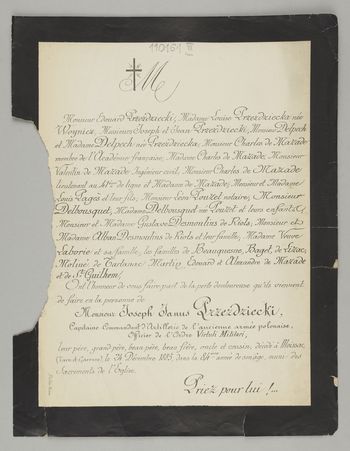 M
Monsieur Edouard Przezdziecki, Madame Louise Przezdziecka née
Woyniez, Messieurs Joseph et Jean Przezdziecki, Monsieur Delpech
et Madame Delpech née Przezdziecka, Monsieur Charles de Mazade
membre de l'Académie française, Madame Charles de Mazade, Monsieur
Valentin de Mazade Ingénieur civil, Monsieur Charles de Mazade
lieutenant au de ligne et Madame de Mazade, Monsieur et Madame
Louis Pagès et leur fils, Monsieur Léon Pouzet notaire, Monsieur
Delbousquet, Madame Delbousquet née Pouzet et leurs enfants,
Monsieur et Madame Gustave Desmoulins de Riols, Monsieur et
Madame Alban Desmoulins de Riols et leur famille, Madame Veuve
Laborie et sa famille, les familles de Bauquesne, Bagel, de
Moliné, de Martin, Edouard et Alexandre de Mazade
et de St Guilhem,
Ont l'honneur de vous faire part de la perte douloureuse qu'ils viennent
de faire en la personne de
Monsieur Joseph Janus Przezdziecki,
Capitaine Commandant d'Artillerie de l'ancienne armée polonaise,
Officier de l'Ordre Virtuti Militari,
leur père, grand père, beau père, beau frère, oncle et cousin, décédé à Moissac,
(Tarn & Garonne) le 24 Décembre 1885, dans la 84ème année de son âge, muni des
Sacrements de l'Eglise.
Priez pour lui !...